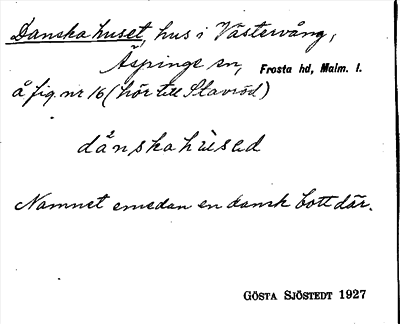 Danska huset, hus i Västervång,
Äspinge sn, Frosta hd, Malm. l.
å fig. nr 16 (hör till Slavröd)
dånskahùsəd
Namnet emedan en dansk bott där.
GÖSTA SJÖSTEDT 1927